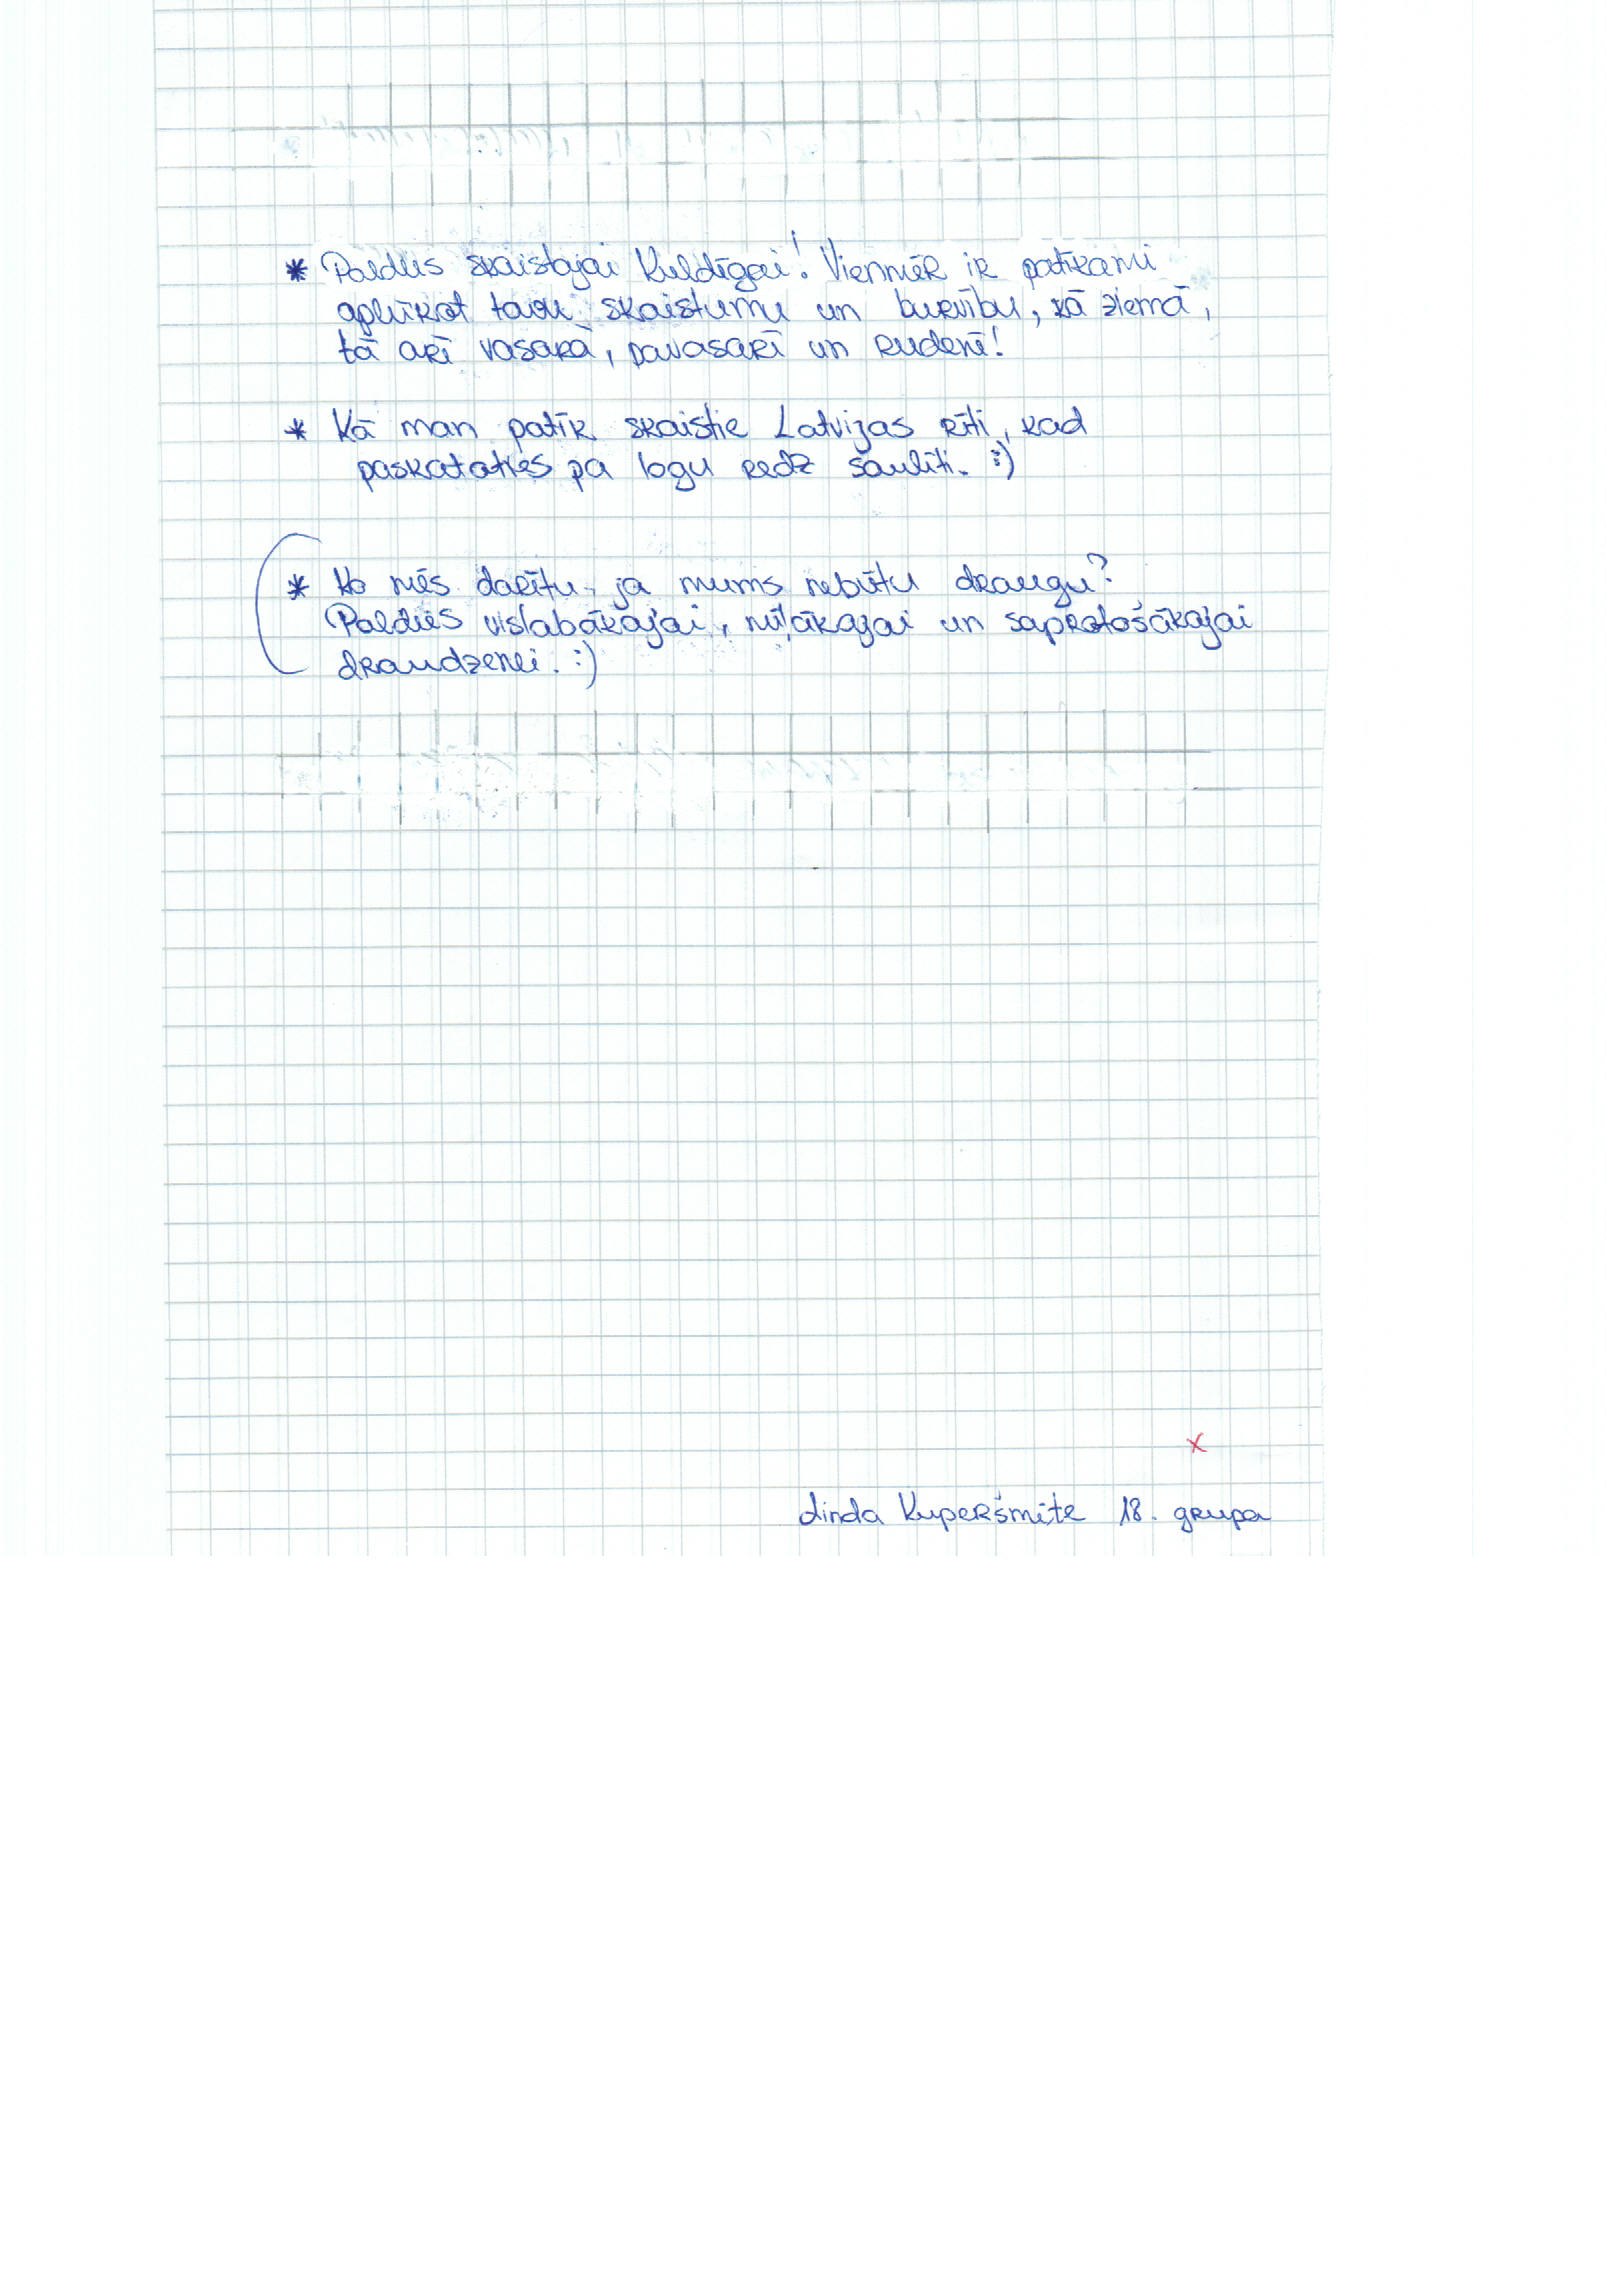 * Paldies skaistajai Kuldīgai! Vienmēr ir patīkami
aplūkot tavu skaistumu un burvību, kā ziemā,
tā arī vasarā, pavasarī un rudenī!
* Kā man patīk skaistie Latvijas rīti, kad
paskatoties pa logu redz saulīti. :)
* Ko mēs darītu, ja mums nebūtu draugu?
Paldies vislabākajai, mīļākajai un saprotošākajai
draudzenei. :)
x
Linda Kuperšmite 18. grupa